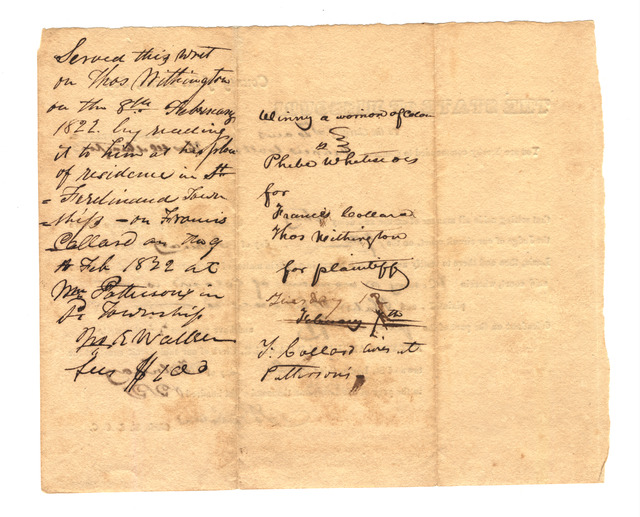 Served this writ
on Thos Withington
on the 8th February
1822. by reading
it to him at his place
of residence in St
= Ferdinand Town
=ship - on Francis
Collard on
Feb 1822 at
Mr Pattersons in
sd Township
Walker
fees
Winny a woman of Color
vs
Phebe Whitesides
for
Francis Collard
Thos Withington
for plaintiff
Tuesday 12
February
F. Collard lives at
Pattersons